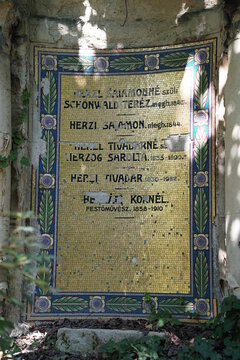 HERZL SALAMONNÉ SZÜL.
SCHÖNWALD TERÉZ. megh.
HERZL SALAMON. megh. 1844.
HERZL TIVADARNÉ SZÜL.
HERZOG SAROLTA.
HERZL TIVADAR
KORNÉL.
FESTŐMŰVÉSZ. 1858-1910